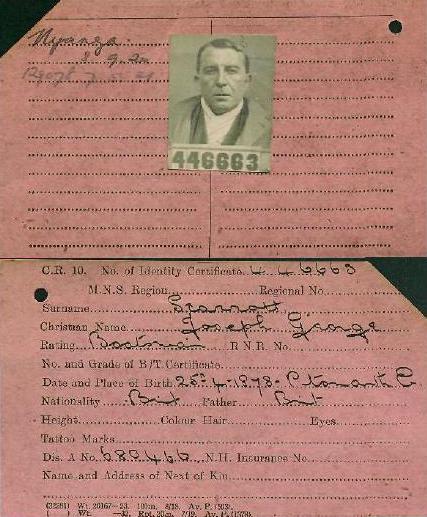 Nyanza.
8 9.20
446663
C.R. 10. No. of Identity Certificate. 446663
M.N.S. Region Regional No.
Surname Sparrott
Christian Name Joseph George
Rating Boatswain R.N.R. No.
No. and Grade of B/T. Certificate.
Date and Place of Birth 25-4-1878-
Nationality Brit Father Brit
Height Colour Hair Eyes
Tattoo Marks
Dis. A No. 689466 N.H. Insurance No.
Name and Address of Next of Kin
(32281) Wt. 20167—23. 100m. 8/18. Av. P. (503).